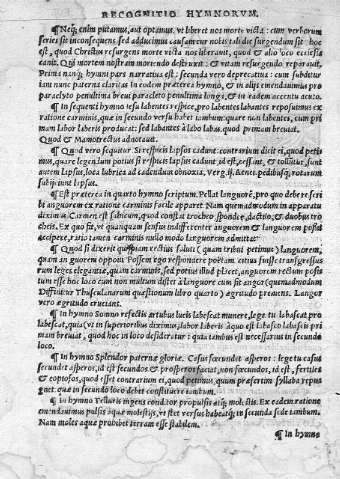 RECOGNITIO HYMNORVM.
¶ Neq; enim putamus, aut optamus, vt liberet nos morte victa: cum verborum
series sit inconsequens, sed adducimus causam cur nobis tali die surgendum sit: hoc
est, quod Christus resurgens morte victa nos liberauit, quod & alio loco ecclesia
canit. Qui mortem nostram moriendo destruxit: & vitam resurgendo reparauit.
Prima nanq; hymni pars narratiua est: secunda vero deprecatiua: cum subditur
iam nunc paterna claritas In eodem præterea hymno, & in alijs emendauimus pro
paracleto penultima breui paracleto penultima longa, & in eadem acentu acuto.
¶ In sequenti hymno iesu labentes respice, pro labentes labantes reposuimus ex
ratione carminis, quæ in secundo versu habet iambum: quare non labentes, cum pri
mam labor laberis producat: sed labantes à labo labas. quod primam breuiat.
Quod & Mamotrectus adnotauit.
¶ Quod vero sequitur. Si respicis lapsos cadunt. contrarium dicit ei, quod petit
mus, quare legendum potius si respicis lapsus cadunt, id est, cessant, & tolluntur, sunt
autem lapsus, loca lubrica ad cadendum obnoxia, Verg. iij. Aenei. pedibusq; rotarum
subijciunt lapsus.
¶ Est præterea in quarto hymno scriptum. Pellat languorē, pro quo debere scri
bi anguorem ex ratione carminis facile apparet. Nam quemadmodum in apparatu
diximus Carmen est sabicum, quod constat trocheo spondeo, dactilo, & duobus tro
cheis. Ex quo fit, vt quanquam sensus indifferenter anguorem & languorem possit
accipere, ratio tamen carminis nullo modo languorem admittit.
¶ Quod si dixeris quispiam rectius salutē ( quam tribui petimus ) languorem,
quam anguorem opponi Possem ego respondere poetam citius fuisse transgressu
rum leges elegantiæ, quam carminis, sed potius illud placet, anguorem rectum posi
tum esse hoc loco cum non multum distet à languore cum sit angor (quemadmodum
Diffinitur Thusculanarum quæstionum libro quarto ) ægritudo præmens. Languor
vero ægritudo crucians.
¶ In hymno Somno refectis artubus lueis labescat munere, lege tu labascat pro
labescat, quia vt in superioribus diximus, labor laberis à quo est labesco labescis pri
mam breuiat, quod hoc in loco desideratur: quia iambus est necessarius in secundo
loco.
¶ In hymno Splendor paternæ gloriæ. Casus sœcundet asperos: lege tu casus
secundet asperos, id est secundos & prosperos faciat, non fœcundos, id est, fertiles
& copiosos, quod esset contrarium ei, quod petimus, quam præsertim syllaba repug
net. quæ in secundo loco debet constituere iambum.
¶ In hymno Telluris ingens conditor propulsis aquæ molestijs. Ex eadem ratione
emendauimus pulsis aquæ molestijs, vt stet versus habatq; in secunda sede iambum.
Nam moles aquæ prohibet terram esse stabilem.
¶ In hymno